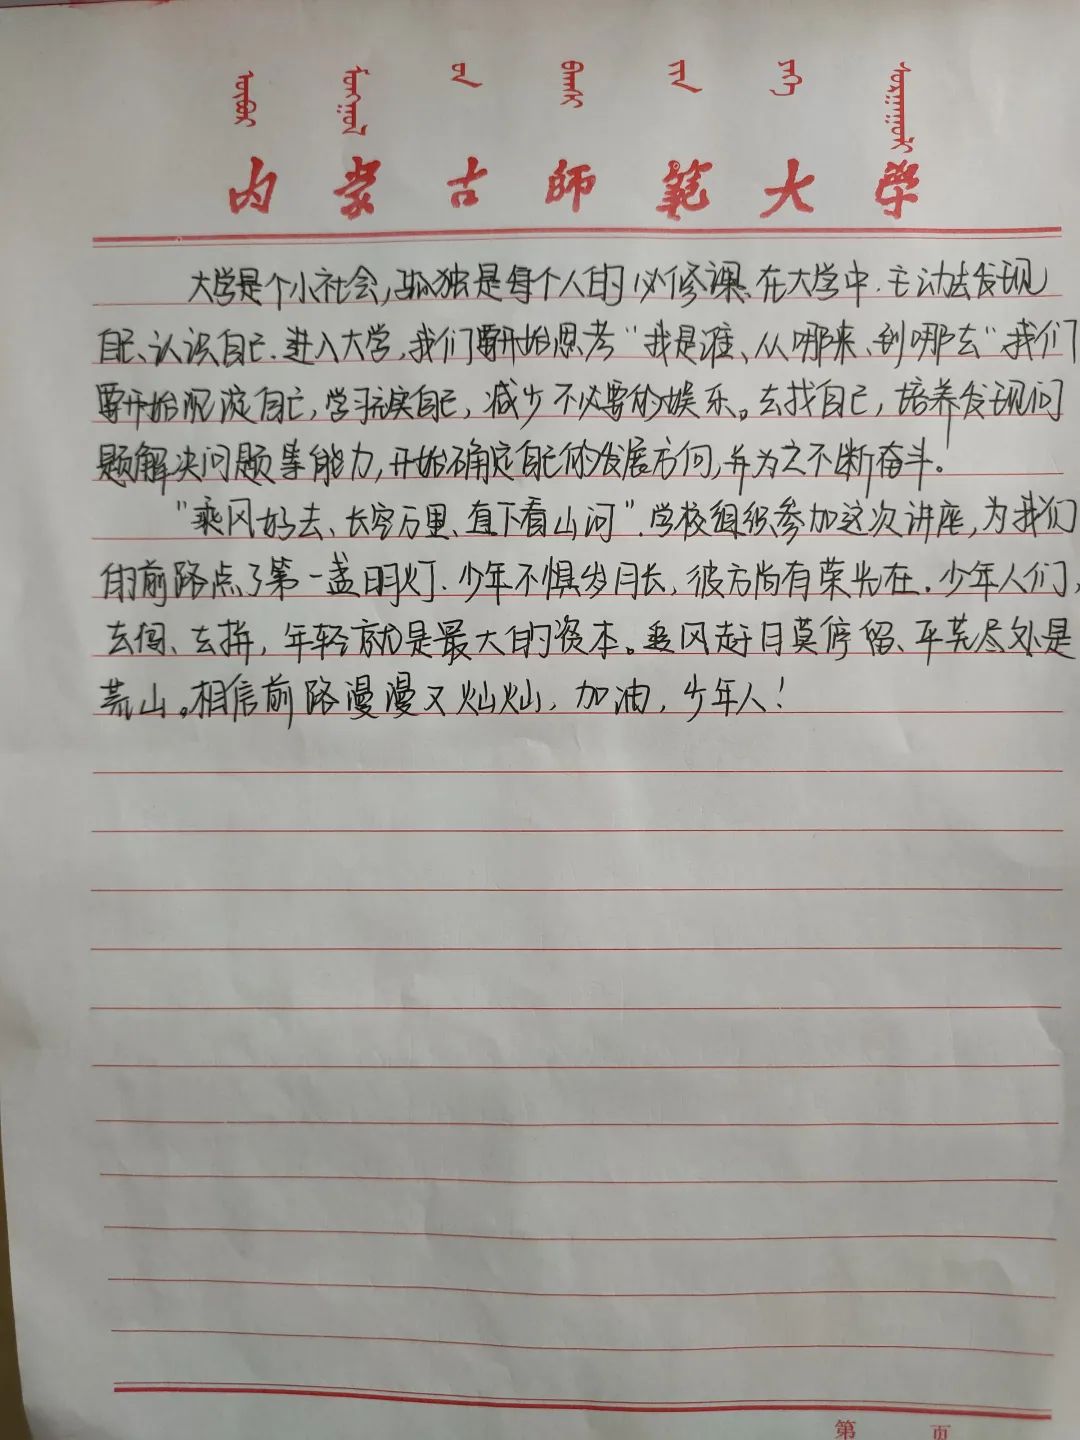 内蒙古师范大学
大学是个小社会，孤独是每个人的必修课、在大学中.主动去发现
自己、认识自己.进入大学，我们要开始思考“我是谁、从哪来、到哪去”我们
要开始沉淀自己，学习充实自己，减少不必要的娱乐。去找自己，培养发现问
题解决问题等能力，开始确定自己的发展方向，并为之不断奋斗！
“乘风好去、长空万里、直下看山河”.学校组织参加这次讲座，为我们
的前路点了第一盏明灯.少年不惧岁月长，彼方尚有荣光在.少年人们，
去闯、去拼，年轻就是最大的资本。追风赶月莫停留、平芜尽处是
荒山。相信前路漫漫又灿灿，加油，少年人！
第 页